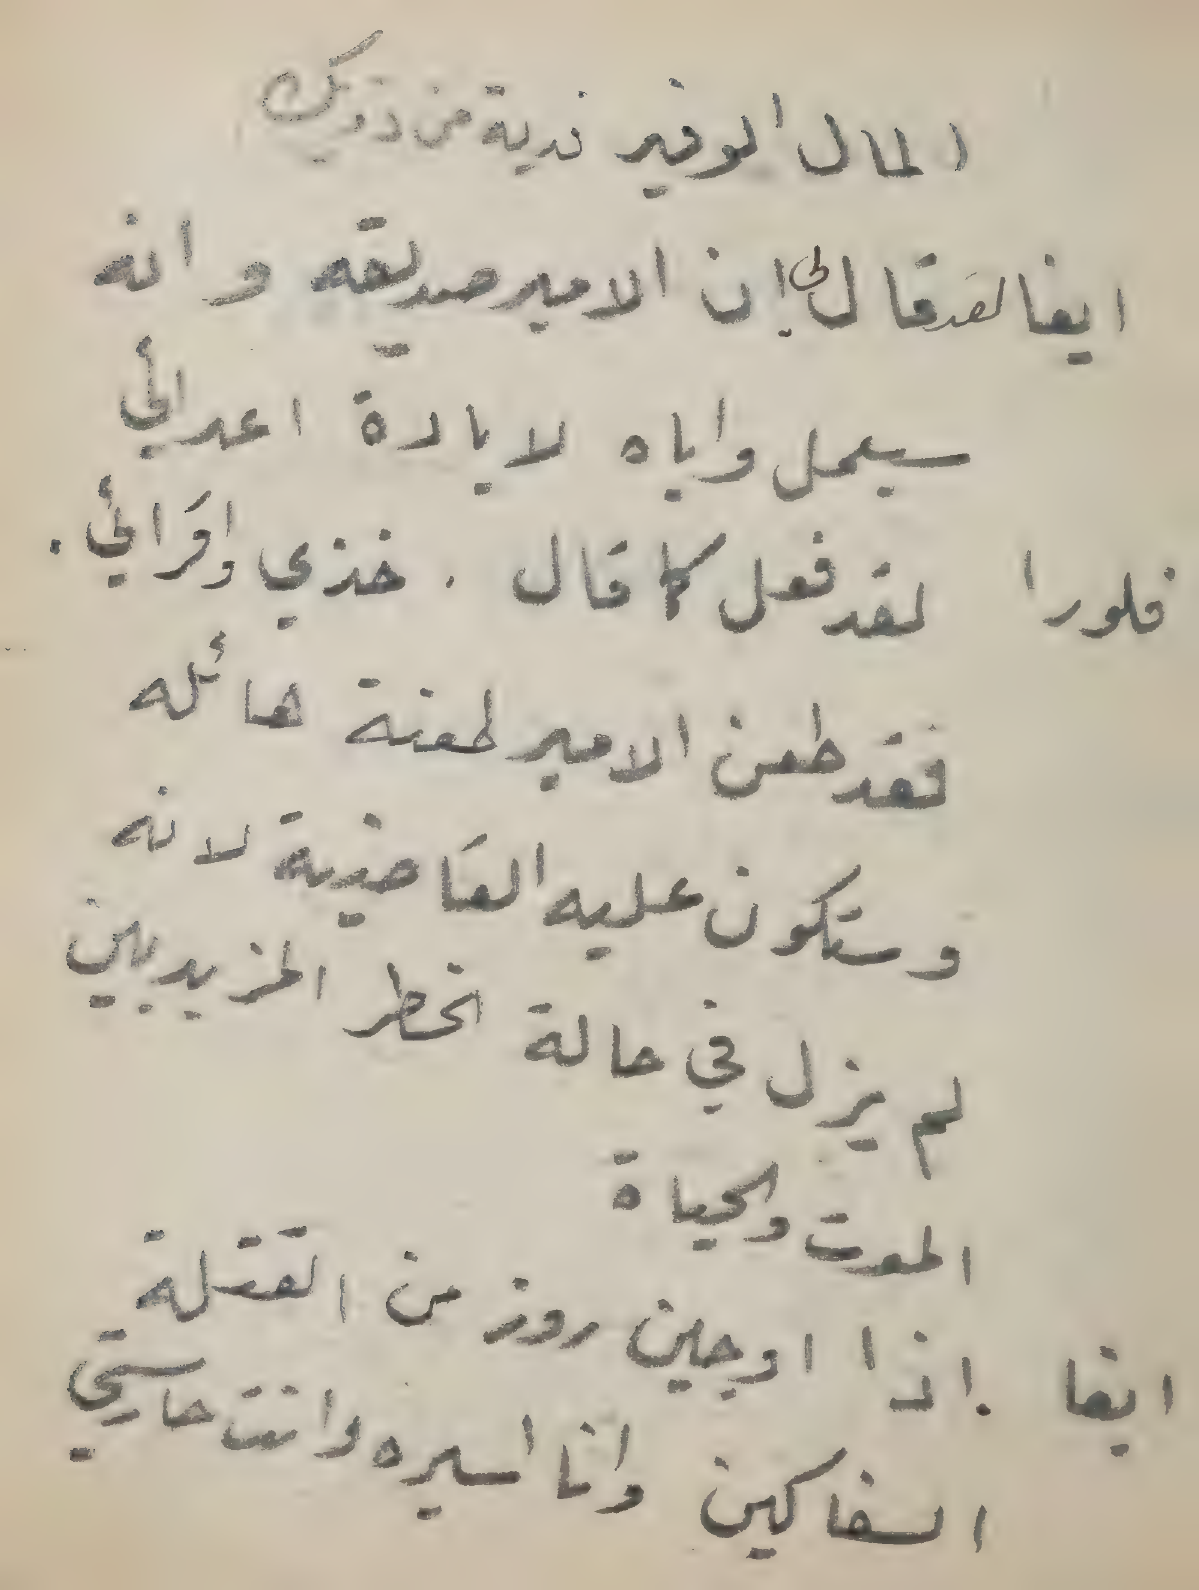 المال الوفير فدية من ذويك
ايفا لقد قال لي إن الامير صديقه وانه
سيعمل واياه لابادة اعدائي
فلورا لقد فعل كما قال . خذي واقرائي .
فقد طعن الامير طعنة هائله
وستكون عليه القاضية لانه
لم يزل في حالة الخطر بين
الموت والحياة
ايفا إذا اوجين روز من القتلة
السفاكين وانا اسيره وانت حارستي